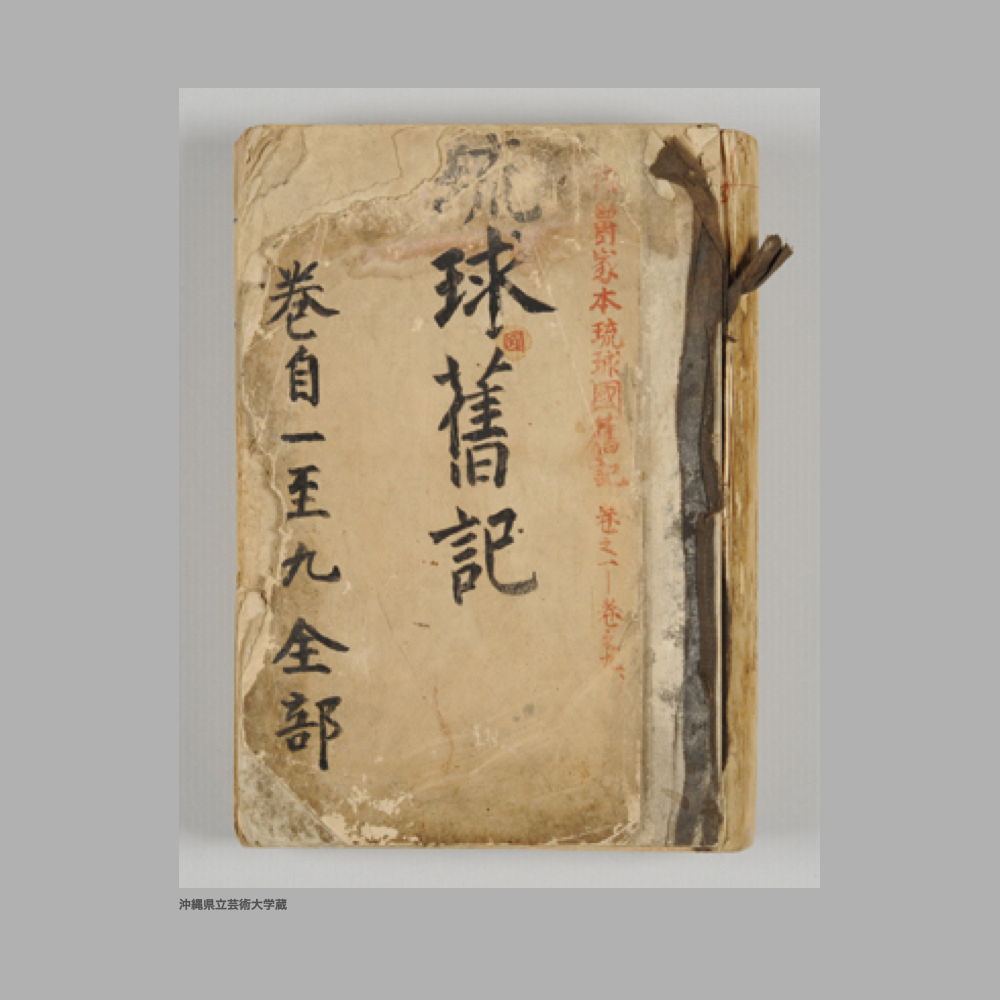 爵家本琉球國舊記 巻之一―巻之九
琉球舊記
巻自一至九全部
沖縄県立芸術大学蔵